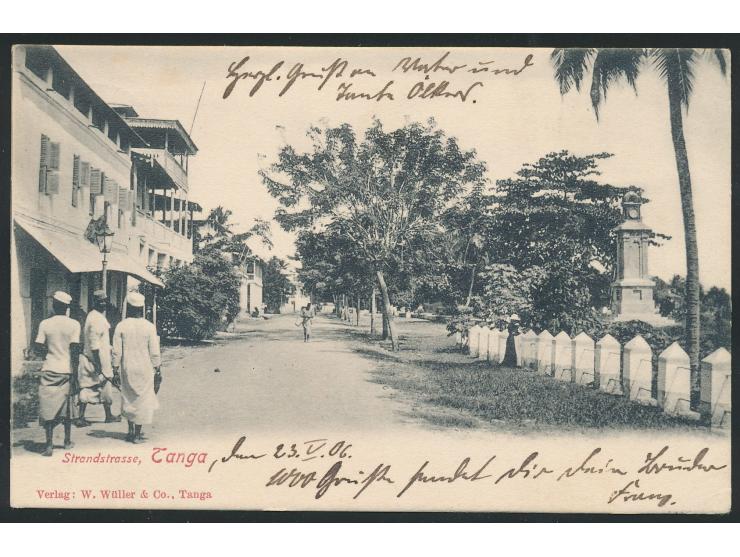 Herzl. Gruß an Vater und
Tante Ölkers.
Strandstrasse, Tanga, den 23. V. 06.
1000 Grüße sendet Dir dein Bruder
Franz.
Verlag: W. Wüller & Co., Tanga